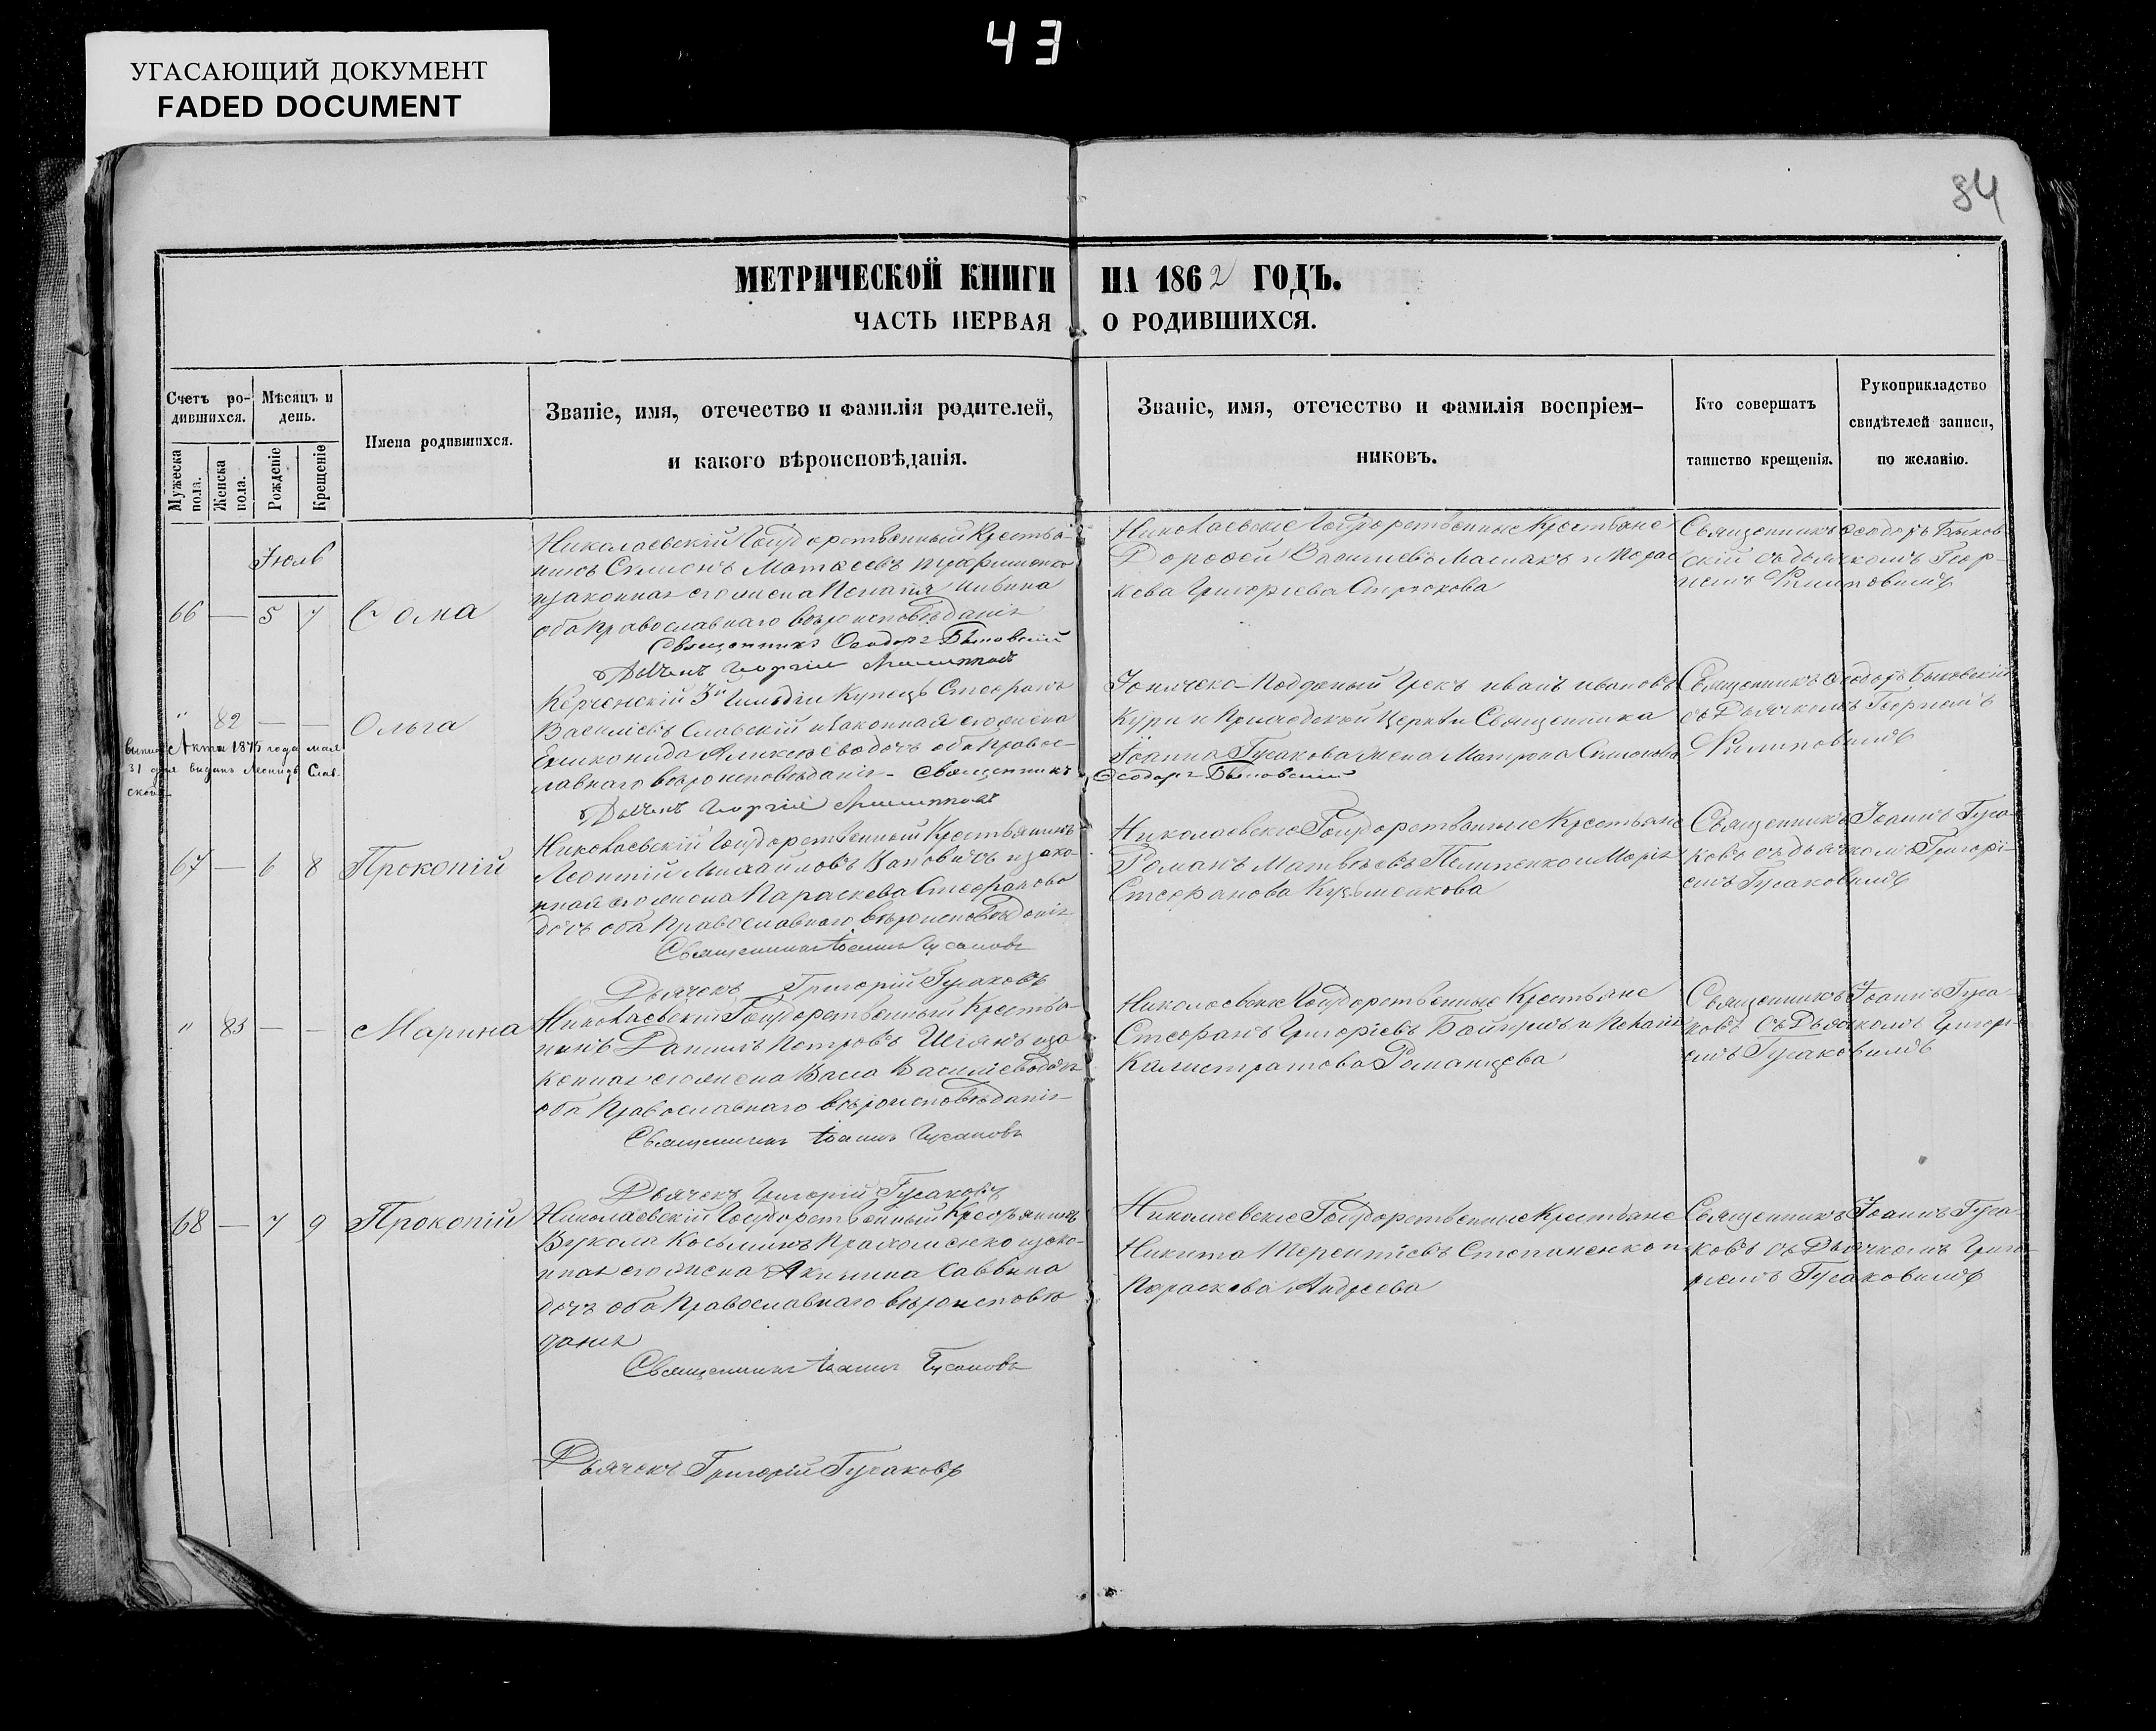 43
УГАСАЮЩИЙ ДОКУМЕНТ
FADED DOCUMENT
84
МЕТРИЧЕСКОЙ КНИГИ НА 1862 ГОДЪ.
ЧАСТЬ ПЕРВАЯ О РОДИВШИХСЯ.
Счетъ родившихся.
Мужеска пола.
Женска пола.
Мѣсяцъ и день.
Рожденіе
Крещеніе
Имена родившихся.
Званіе, имя, отечество и фамилія родителей,
и какого вѣроисповѣданія.
Званіе, имя, отечество и фамилія воспріем-
никовъ.
Кто совершатъ
таинство крещенія.
Рукоприкладство
свидѣтелей записи,
по желанію.
Іюль
66 — 5 7
Николаевскій Государственный Крестья-
нинъ Симеонъ Матѳеевъ
изаконная его жена
оба Православнаго вѣроисповѣданія
Священникъ Ѳеодоръ Быковскій
Дьячекъ Георгій
Николаевские Государственные Крестьяне
Дорофей Васильевъ и Парас
кева Григорьева
Священникъ Ѳеодоръ Быков
скій съ дьячкомъ Геор-
гіемъ
" 82 — — Ольга
Актъ 1875 года мая
31 дня выданъ Леониду Слав-
ской
Керченскій 3й Гильдіи Купецъ Стефанъ
Васильевъ Славскій изаконная его жена
Алексѣева дочь оба Правос-
лавнаго вѣроисповѣданія - Священникъ Ѳеодоръ Быковскій
Дьячекъ Георгій
Іоническо-Подданый Грекъ Иванъ Ивановъ
Кури и Церкви Священника
Іоанна Гусакова жена Матрона Симонова
Священникъ Ѳеодоръ Быковскій
съ Дьячкомъ Георгіемъ
67 — 6 8 Прокопій
Николаевскій Государственный Крестьянинъ
Леонтій Михайловъ изако-
нная его жена Параскева Стефанова
дочь оба Православнаго вѣроисповѣданія
Священникъ Іоаннъ Гусаковъ
Дьячекъ Григорій Гусаковъ
Николаевскіе Государственные Крестьяне
Романъ Матвѣевъ Пелипенко и Марія
Стефанова Кузьменкова
Священникъ Іоаннъ Гуса-
ковъ съ дьячкомъ Григорі-
емъ Гусаковымъ
" 83 — — Марина
Николаевскій Государственный Крестья-
нинъ Даниилъ Петровъ иза
конная его жена Васса Васильева дочь
оба Православнаго вѣроисповѣданія
Священникъ Іоаннъ Гусаковъ
Дьячекъ Григорій Гусаковъ
Николаевскіе Государственные Крестьяне
Стефанъ Григорьевъ и Пелагія
Калистратова Романцева
Священникъ Іоаннъ Гуса-
ковъ съ Дьячкомъ Григорі-
емъ Гусаковымъ
68 — 7 9 Прокопій
Николаевскій Государственный Крестьянинъ
Вукола Косьминъ изако-
нная его жена Акилина Саввина
дочь оба Православнаго вѣроисповѣ
данія
Священникъ Іоаннъ Гусаковъ
Дьячекъ Григорій Гусаковъ
Николаевскіе Государственные Крестьяне
Никита Терентіевъ Степаненко и
Параскева Андреева
Священникъ Іоаннъ Гуса-
ковъ съ Дьячкомъ Григо-
ріемъ Гусаковымъ